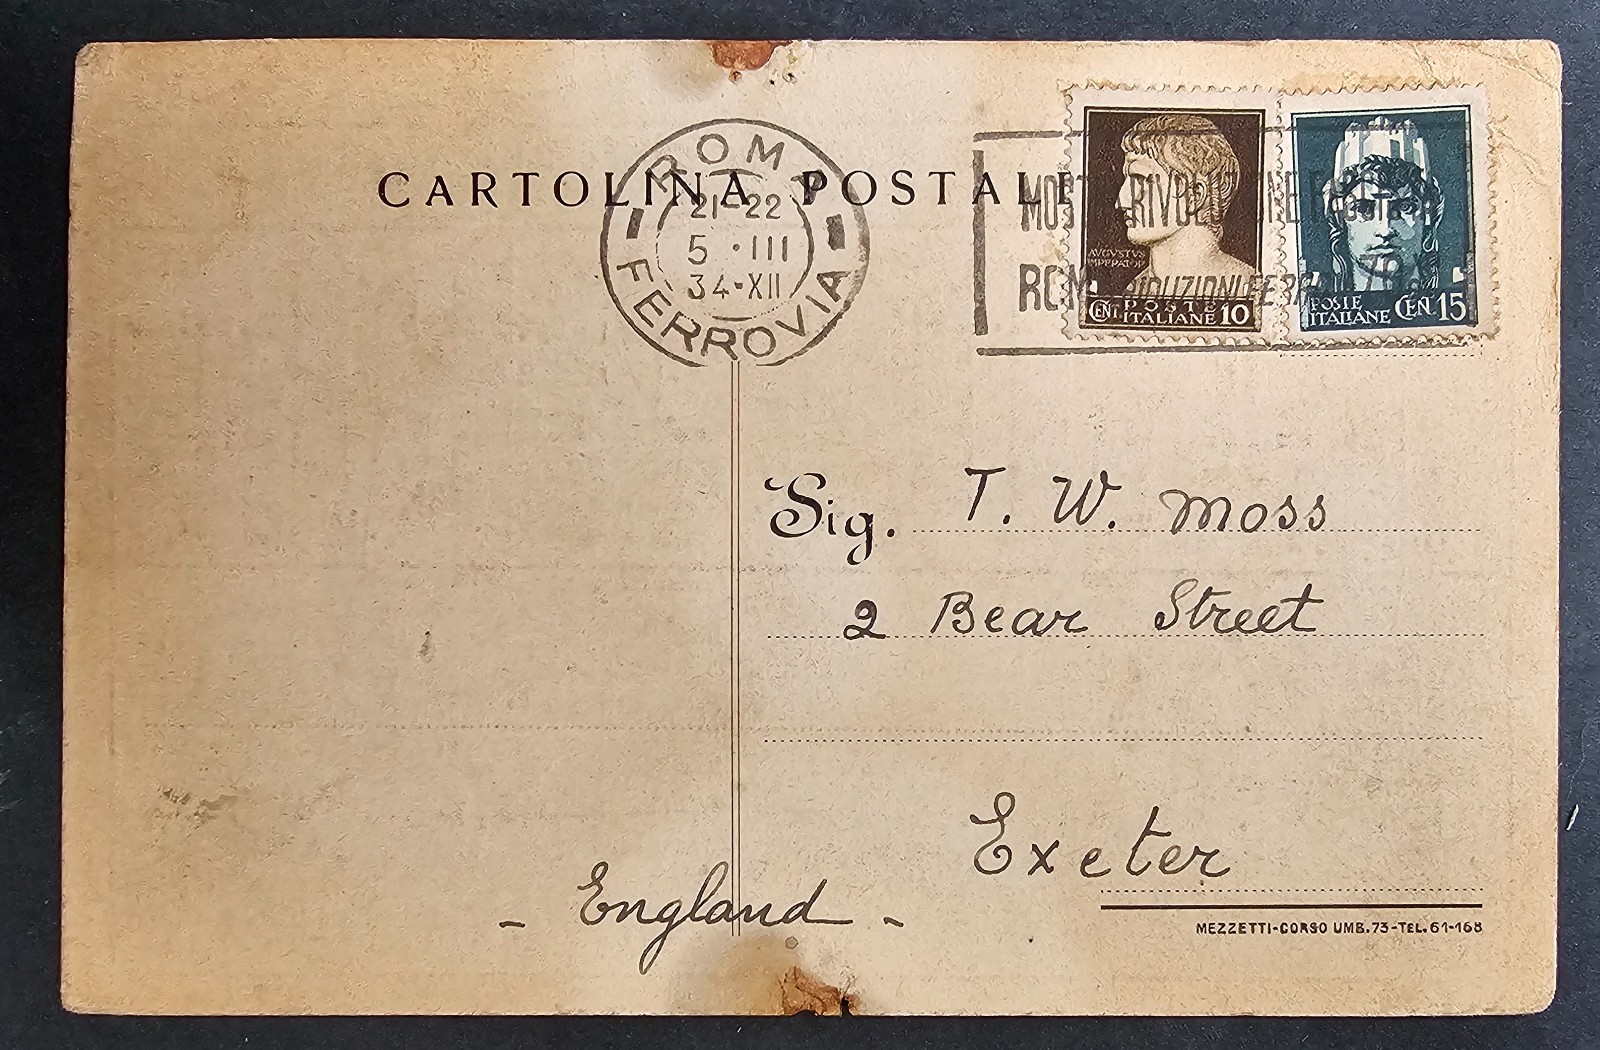 CARTOLINA POSTALE
ROMA
21-22
5 · III
34·XII
FERROVIA
MOSTRA RIVOLUZIONE FASCISTA
ROMA RIDUZIONI FERR
AVGVSTVS
IMPERATOR
CENT. POSTE ITALIANE 10
POSTE ITALIANE CEN. 15
Sig. T. W. Moss
2 Bear Street
Exeter
- England -
MEZZETTI-CORSO UMB.73-TEL.61-168